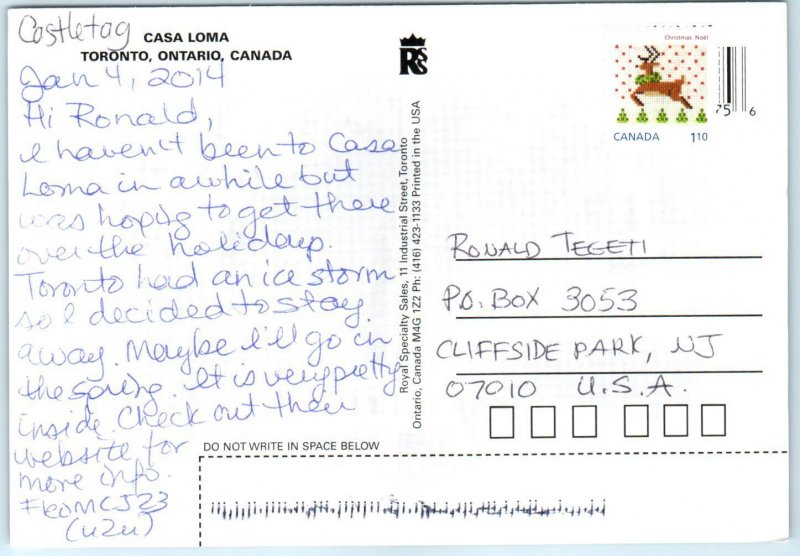 Castletag
CASA LOMA
TORONTO, ONTARIO, CANADA
Jan 4, 2014
Hi Ronald,
I haven't been to Casa
Loma in awhile but
was hoping to get there
over the holidays.
Toronto had an ice storm
so I decided to stay
away. Maybe I'll go in
the spring. It is very pretty
inside. Check out their
website for
more info.
(uzu)
RSS
Royal Specialty Sales, 11 Industrial Street, Toronto
Ontario, Canada M4G 1Z2 Ph: (416) 423-1133 Printed in the USA
Christmas Noël
CANADA 1.10
75 6
RONALD TEGETI
P.O. BOX 3053
CLIFFSIDE PARK, NJ
07010 U.S.A.
DO NOT WRITE IN SPACE BELOW